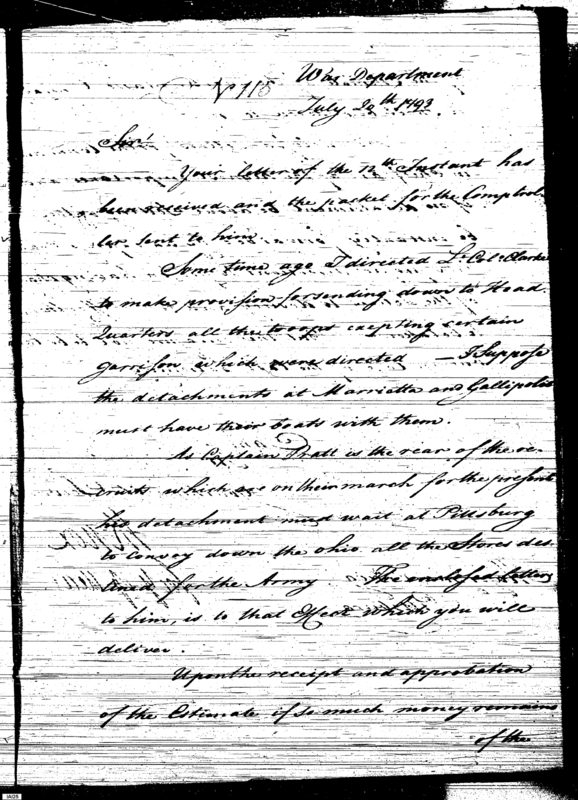 No 118
War Department
July 20th 1793
Sir!
Your letter of the 12th Instant has
been received and the packet for the Comptrol-
ler sent to him
Some time ago I directed Lt Colo Clarke
to make provision for sending down to Head
Quarters all the troops excepting certain
garrison which were directed — I Suppose
the detachments at Marrietta and Gallipolis
must have their boats with them.
As Captain Pratt is the rear of the re-
cruits which are on their march for the present
his detachment must wait at Pittsburg
to convoy down the ohio all the Stores des-
tined for the Army. The enclosed letter
to him, is to that effect which you will
deliver.
Upon the receipt and approbation
of the Estimate if so much money remains
of the